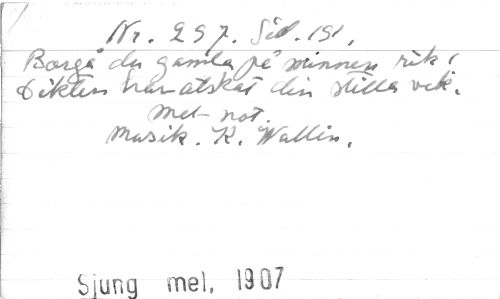 Nr. 297. Sid. 191.
Borgå du gamla på minnen rik!
Dikten har älskat din stilla vik.
Met not.
Musik. K. Wallin.
Sjung mel, 1907